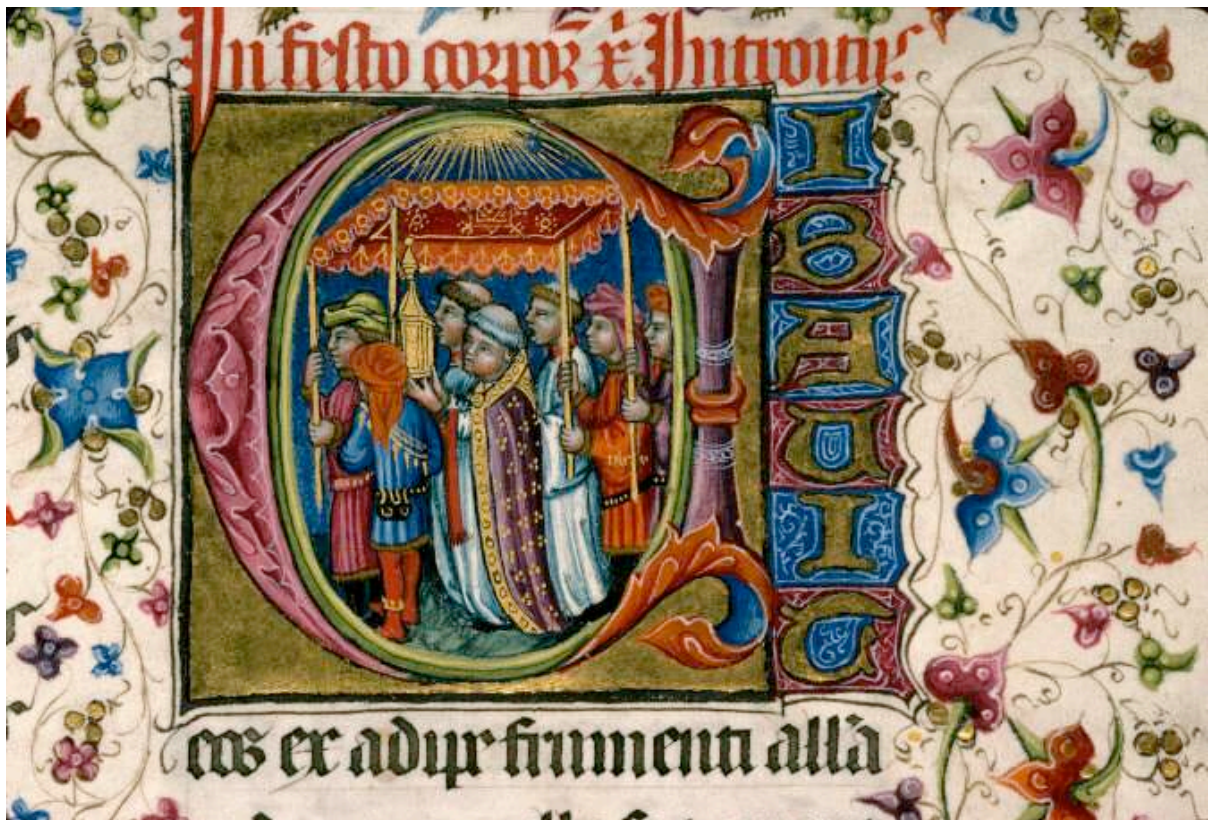 In festo corpor̄ x̄. Introitus
CIBAUIT
eos ex adipe frumenti allā